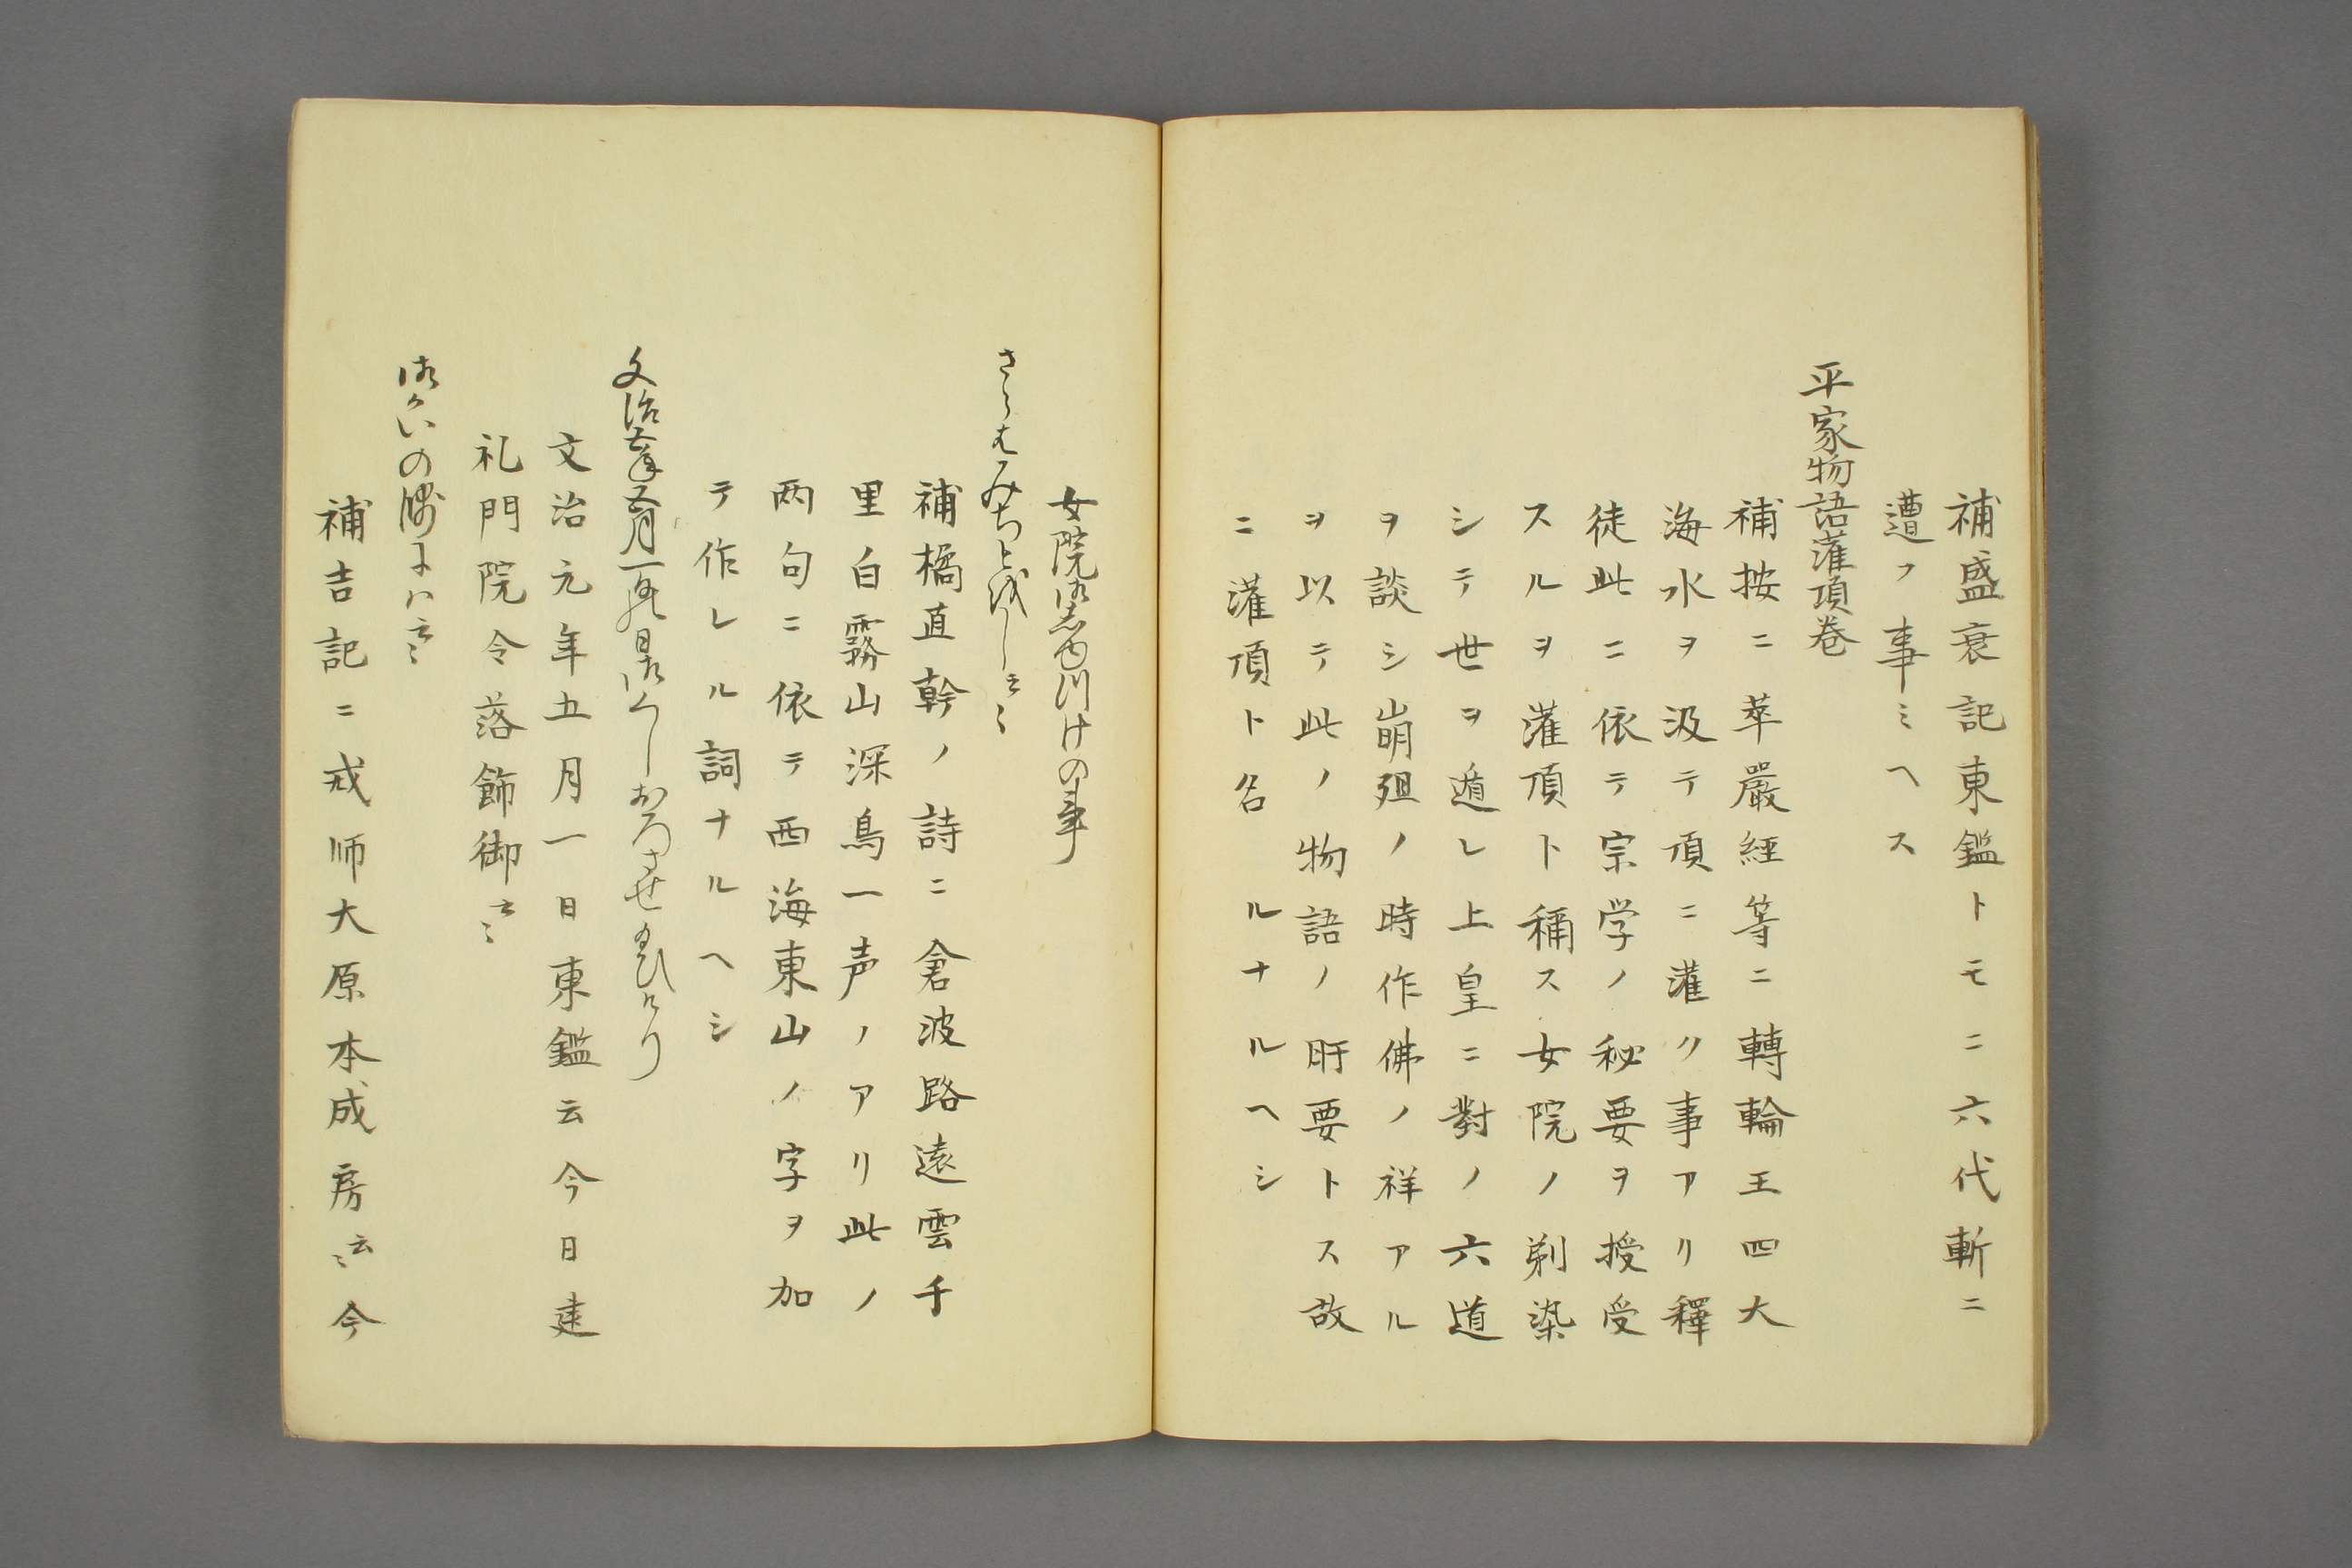 補盛衰記東鑑トモニ六代斬ニ
遭フ事ミヘス
平家物語灌頂卷
補按ニ華嚴經等ニ轉輪王四大
海水ヲ汲テ頂ニ灌ク事アリ釋
徒此ニ依テ宗学ノ秘要ヲ授受
スルヲ灌頂ト稱ス女院ノ剃染
シテ世ヲ遁レ上皇ニ對ノ六道
ヲ談シ崩殂ノ時作佛ノ祥アル
ヲ以テ此ノ物語ノ肝要トス故
ニ灌頂ト名ルナルヘシ
女院御志由川けの事
補橘直幹ノ詩ニ倉波路遠雲千
里白霧山深鳥一声ノアリ此ノ
两句ニ依テ西海東山ノ字ヲ加
テ作レル詞ナルヘシ
文治元年五月一日御くしおろさせ給ひけり
文治元年五月一日東鑑云今日建
礼門院令落飾御云々
御かいの師にハ云々
補吉記ニ戒师大原本成房云々今